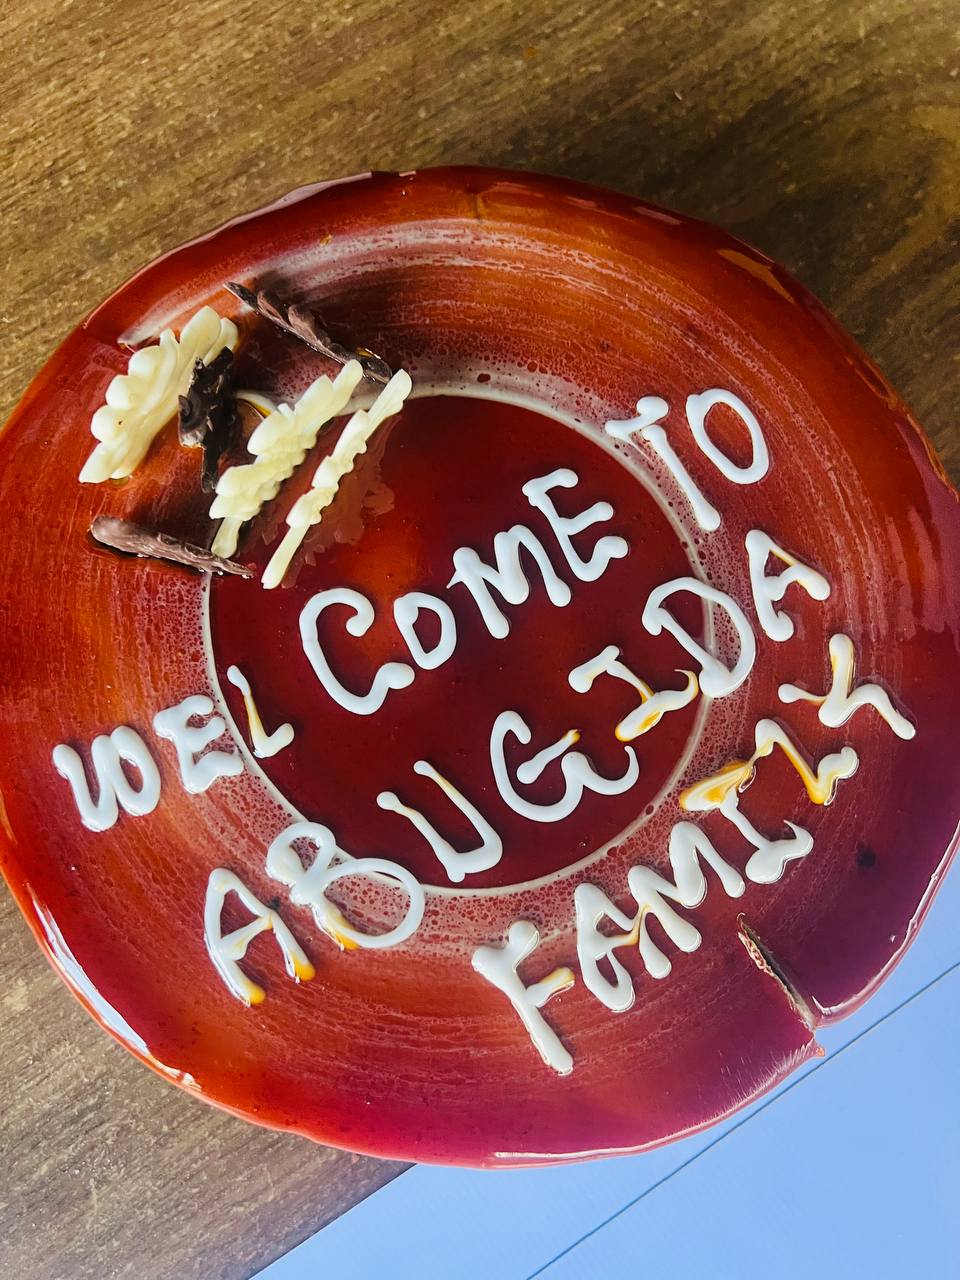 WEL COME TO
ABUGIDA
FAMILY